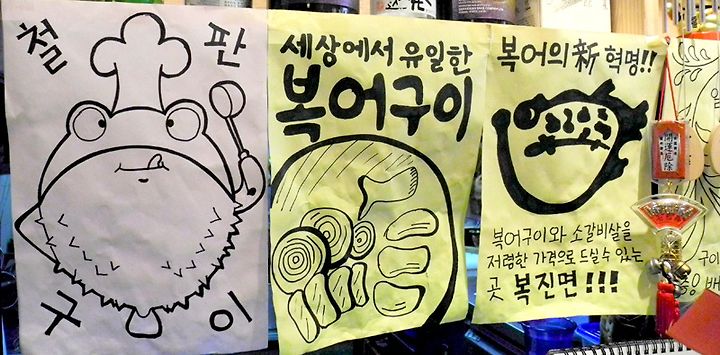 철 판
구 이
세상에서 유일한
복어구이
복어의 新 혁명!!
복어구이와 소갈비살을
저렴한 가격으로 드실수 있는
곳 복진면 !!!
開運厄除
구이